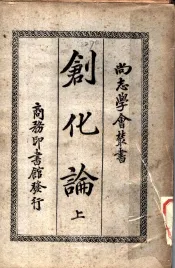 尚志學會叢書
創化論 上
商務印書館發行